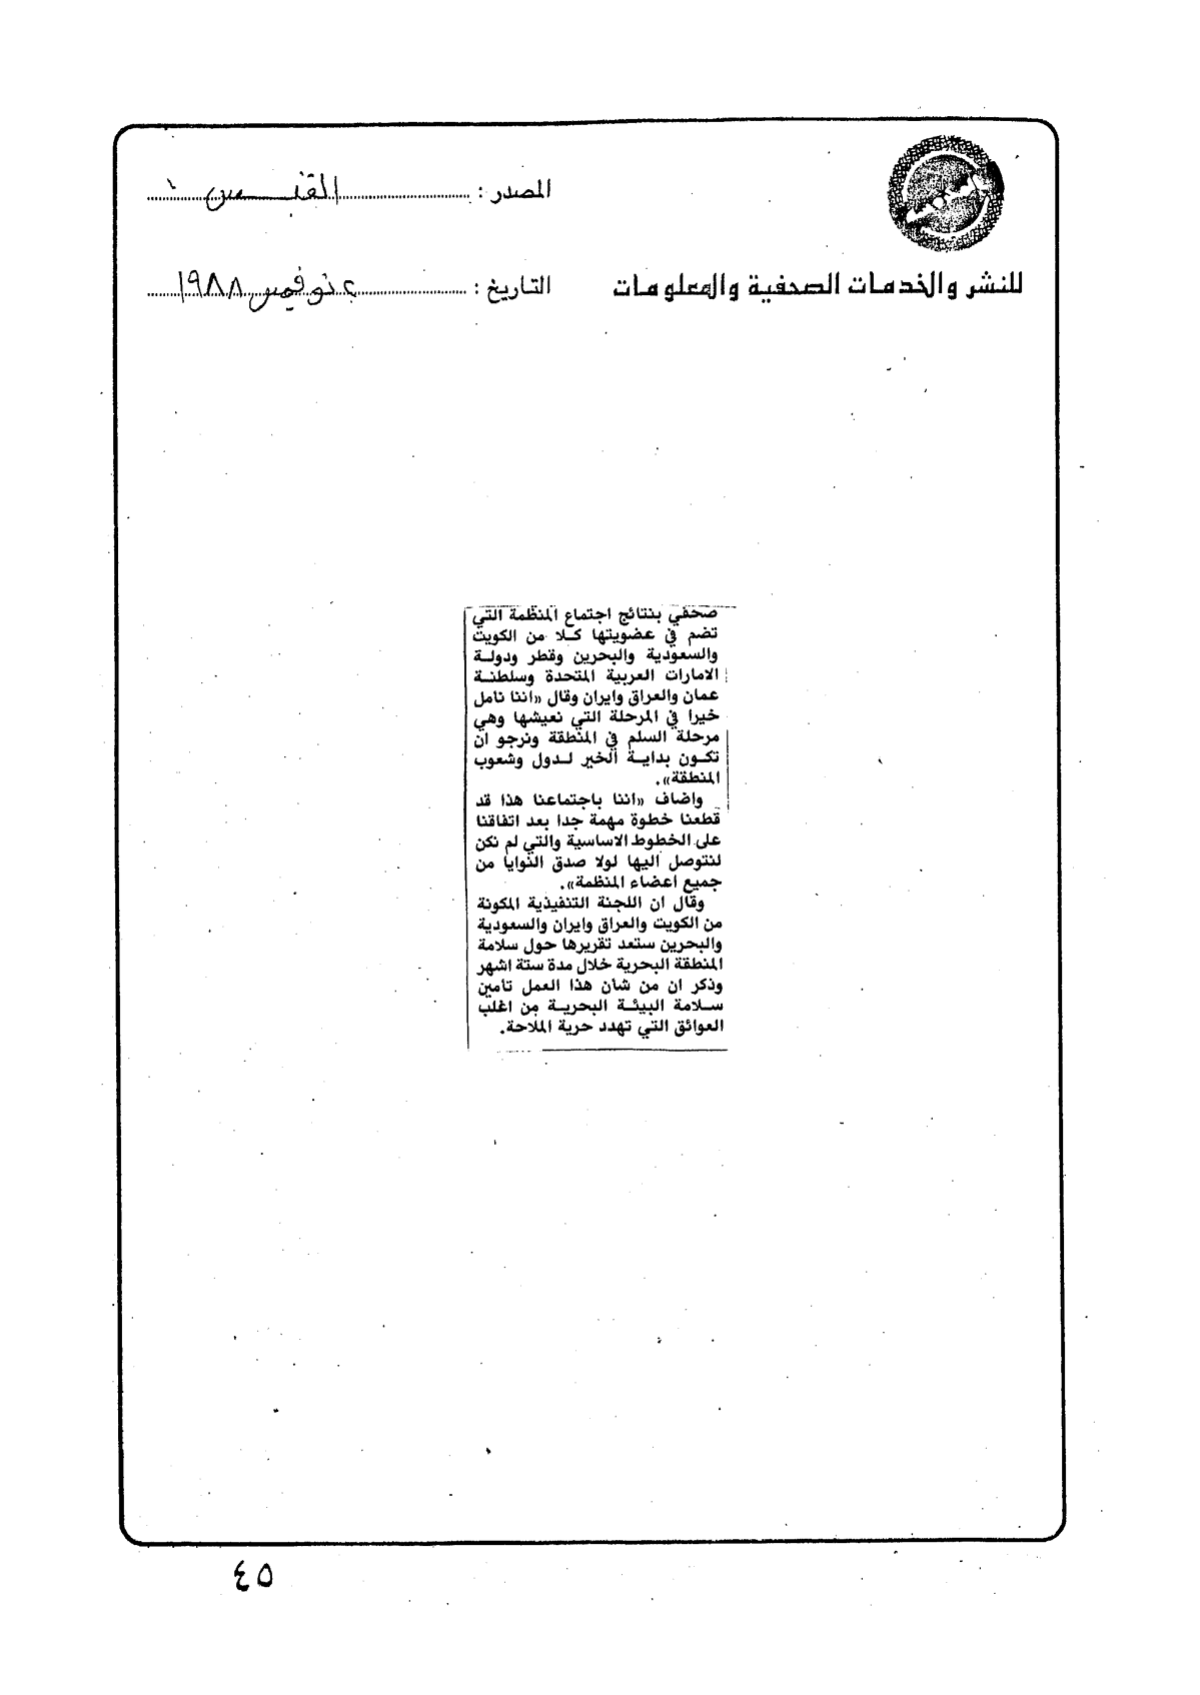 المصدر : القبس
للنشر والخدمات الصحفية والمعلومات
التاريخ : ٢ نوفمبر ١٩٨٨
صحفي بنتائج اجتماع المنظمة التي
تضم في عضويتها كلا من الكويت
والسعودية والبحرين وقطر ودولة
الامارات العربية المتحدة وسلطنة
عمان والعراق وايران وقال «اننا نامل
خيرا في المرحلة التي نعيشها وهي
مرحلة السلم في المنطقة ونرجو ان
تكون بداية الخير لدول وشعوب
المنطقة».
واضاف «اننا باجتماعنا هذا قد
قطعنا خطوة مهمة جدا بعد اتفاقنا
على الخطوط الاساسية والتي لم نكن
لنتوصل اليها لولا صدق النوايا من
جميع اعضاء المنظمة».
وقال ان اللجنة التنفيذية المكونة
من الكويت والعراق وايران والسعودية
والبحرين ستعد تقريرها حول سلامة
المنطقة البحرية خلال مدة ستة اشهر
وذكر ان من شان هذا العمل تامين
سلامة البيئة البحرية من اغلب
العوائق التي تهدد حرية الملاحة.
٤٥